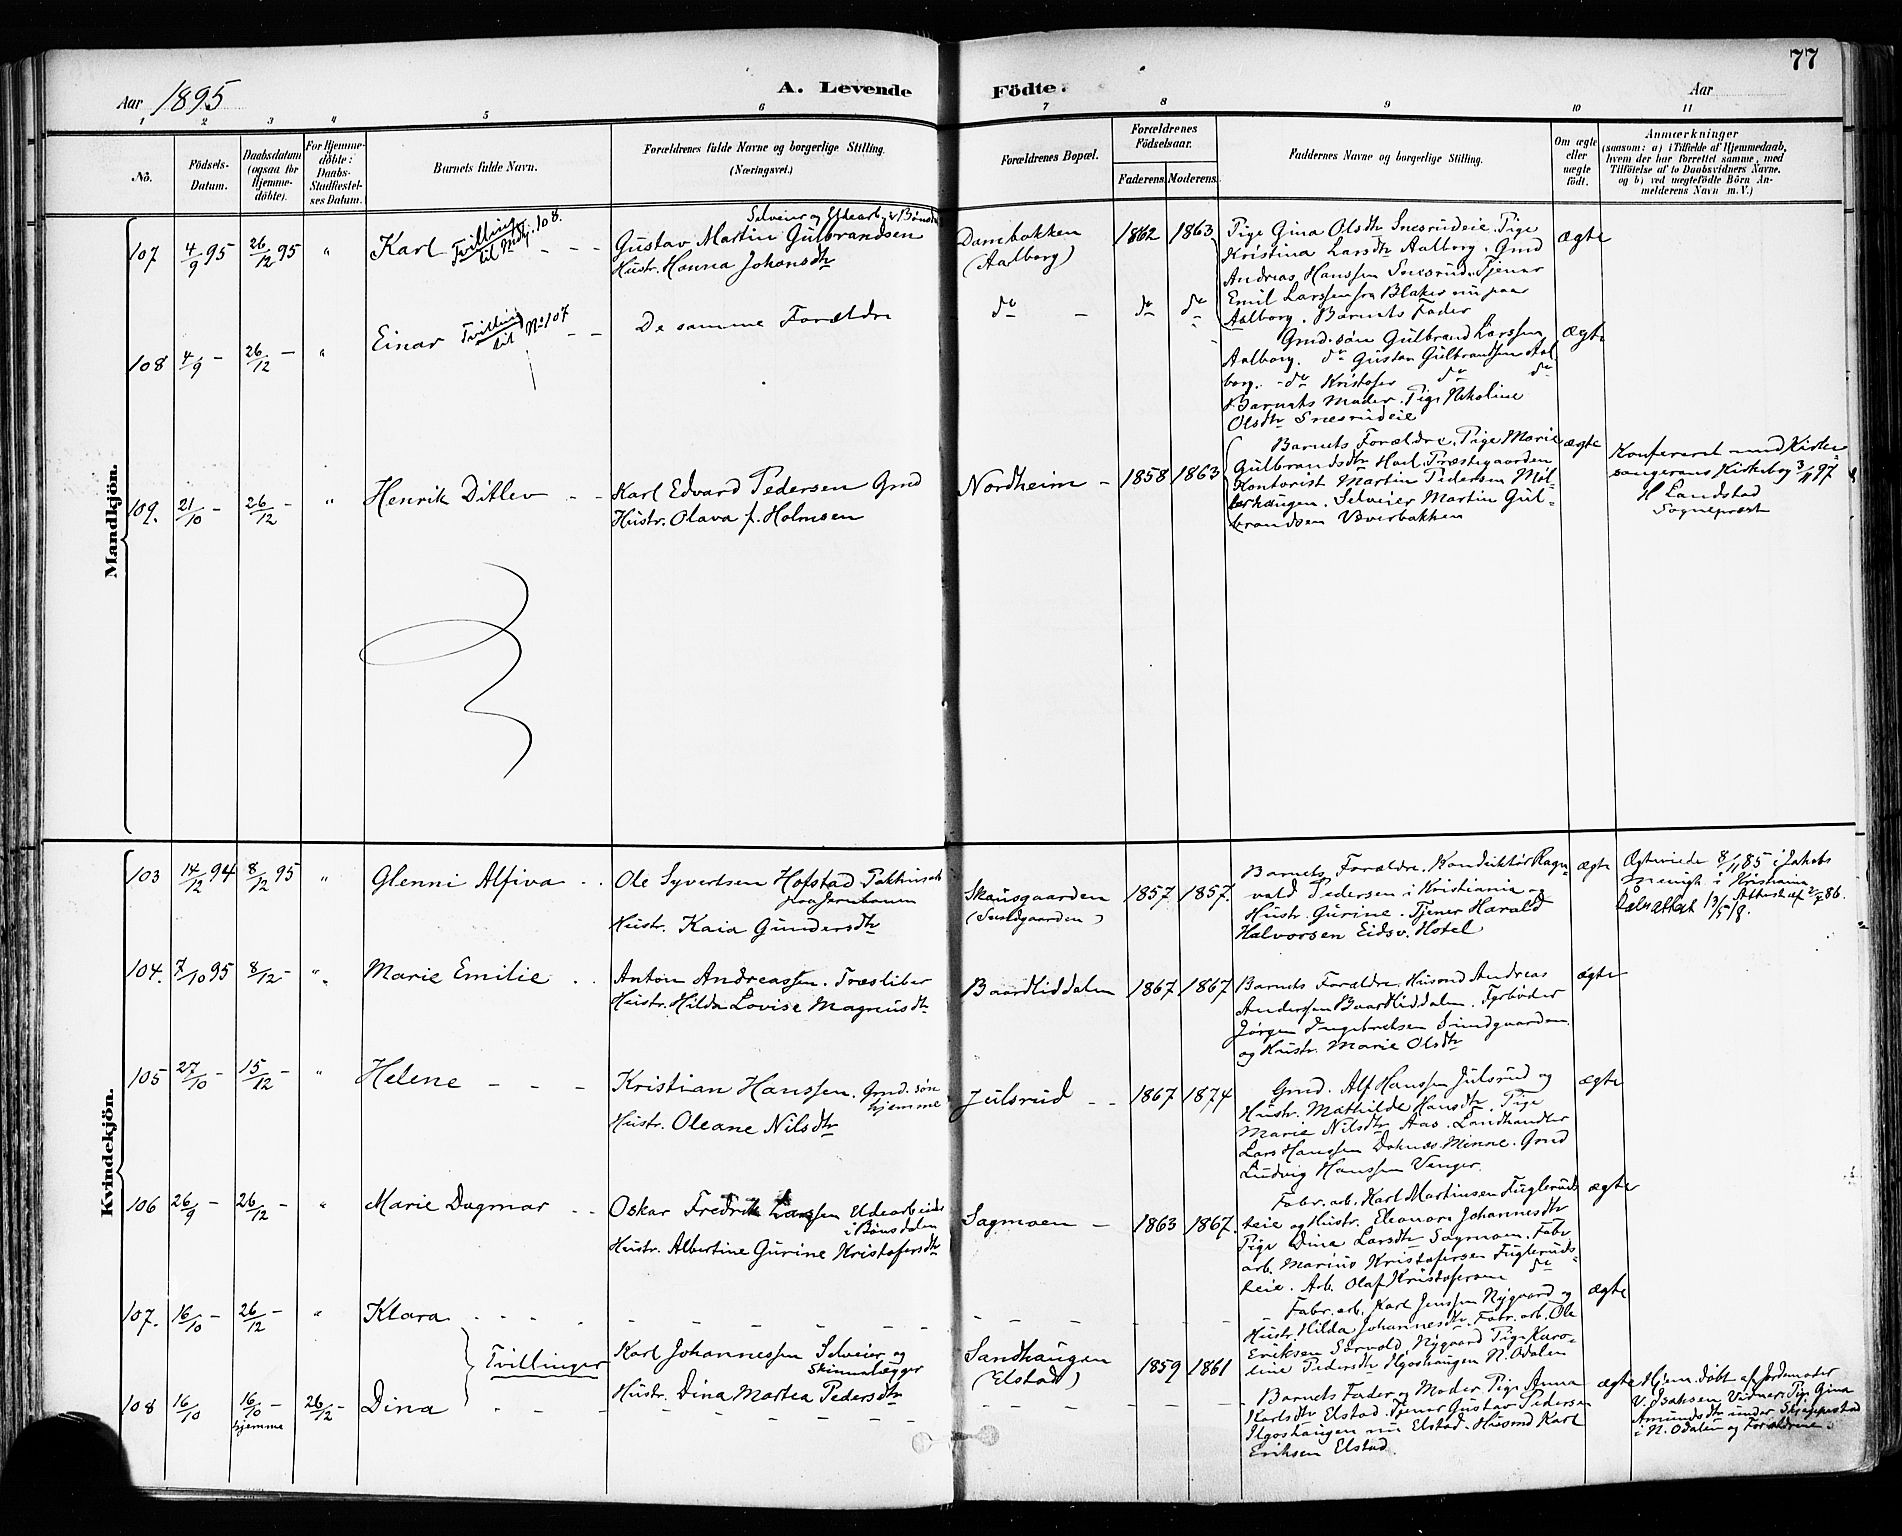 77
Aar 1895
A. Levende Födte.
Aar
1 2 3 4 5 6 7 8 9 10 11
No.
Födsels-Datum.
Daabsdatum (ogsaa for Hjemme-döbte).
For Hjemme-döbte: Daabs-Stadfæstel-ses Datum.
Barnets fulde Navn.
Forældrenes fulde Navne og borgerlige Stilling.
(Næringsvei.)
Forældrenes Bopæl.
Forældrenes Födselsaar.
Faderens. Moderens.
Faddernes Navne og borgerlige Stilling.
Om ægte eller uægte födt.
Anmærkninger
(saasom: a) i Tilfælde af Hjemmedaab,
hvem der har forrettet samme, med
Tilföielse af to Daabsvidners Navne,
og b) ved uægtefödte Börn An-
melderens Navn m. V.)
Mandkjön.
107 4/9 95 26/12 95 " Karl Tvilling til No. 108.
Selveier og Eldearb. v Bönsd
Gustav Martin Gulbrandsen
Hustr. Hanna Johansdtr
Dambakken
(Aalborg)
1862 1863
Pige Gina Olsdtr Snesrudeie. Pige
Kristina Larsdtr Aalborg. Grnd
Andreas Hanssen Snesrud. Tjener
Emil Larssen fra Blaker nu paa
Aalborg. Barnets Fader
ægte
108 4/9 – 26/12 – " Einar Tvilling til No 107
De samme Forældre
do – do do
Grnd.søn Gulbrand Larssen
Aalborg. do Gustav Gulbrandsen Aal
borg. do Kristofer do do
Barnets Moder. Pige Nikoline
Olsdtr Snesrudeie
ægte
109. 21/10 – 26/12 – " Henrik Ditlev
Karl Edvard Pedersen Grnd
Hustr. Olava f. Holmsen
Nordheim – 1858 1863
Barnets Forældre. Pige Marie
Gulbrandsdtr Hoel Præstegaarden
Kontorist Martin Pedersen Møl-
lerhaugen. Selveier Martin Gul-
brandsen Væverbakken
ægte
Konfereret med Kirke-
sangerens Kirkebog 3/11 97
H Landstad
Sogneprest
Kvindekjön.
103 14/12 94 8/12 95 " Glenni Alfiva
Ole Syvertsen Hofstad Pakhusarb
paa Jernbanen
Hustr. Kaia Gundersdtr
Skausgaarden
(Sundgaarden)
1857 1857.
Barnets Forældre. Konduktør Ragn
vald Pedersen i Kristiania og
Hustr. Gurine. Tjener Harald
Halvorsen Eidsv. Hotel
ægte
Ægteviede 8/11 85 i Jakobs
Menigh i Kristiania
104. 7/10 95 8/12 – " Marie Emilie
Anton Andreassen. Træsliber
Hustr. Hilda Lovise Magnusdtr
Baardliddalen 1867 1867
Barnets Forældre. Husmd Andreas
Andersen Baardliddalen. Fyrbøder
Jørgen Ingebretsen Sundgaarden
og Hustr. Marie Olsdtr
ægte
105 27/10 – 15/12 – " Helene
Kristian Hanssen. Grnd. søn
hjemme
Hustr. Oleane Nilsdtr
Julsrud 1867 1874
Grnd. Alf Hanssen Julsrud og
Hustr. Mathilde Hansdtr. Pige
Marie Nilsdtr Aas. Landhandler
Lars Hanssen Doknes Minne. Grnd
Ludvig Hanssen Venger.
ægte
106 26/9 – 26/12 – " Marie Dagmar
Oskar Fredrik Larssen Eldearbeider
i Bönsdalen
Hustr. Albertine Gurine Kristofersdtr
Sagmoen – 1863 1867.
Fabr. arb. Karl Martinsen Fuglerud-
seie og Hustr. Eleonore Johannesdtr
Pige Dina Larsdtr Sagmoen. Fabr
arb. Marius Kristofersen Fugleruds-
eie. Arb. Olaf Kristofersen do
ægte
107. 16/10 – 26/12 – " Klara
Tvillinger
Karl Johannessen Selveier og
Skinnelægger
Hustr. Dina Martea Pedersdtr
Sandhaugen
(Elstad)
1859 1861
Fabr. arb. Karl Jenssen Nygaard og
Hustr. Hilda Johannesdtr. Fabr. arb. Ole
Eriksen Sørvold, Nygaard. Pige Karo-
line Pedersdtr Ilgoshaugen N. Odalen
ægte
108 16/10 16/10 – hjemme 26/12 – Dina
Barnets Fader og Moder. Pige Anna
Karlsdtr Elstad. Tjener Gustav Pedersen
Ilgoshaugen nu Elstad. Husmd Karl
Eriksen Elstad.
ægte
Hjem.døbt af Jordemoder
V. Isaksen. Vidner: Pige Gina
Amundsdtr under
i N. Odalen og Forældrene.